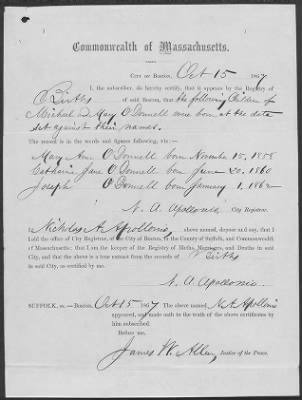 Commonwealth of Massachusetts.
CITY OF BOSTON, Oct 15 1867
I, the subscriber, do hereby certify, that it appears by the Registry of
Births of said Boston, that the following Children of
Michael & Mary O'Donnell were born at the date
set against their names.
The record is in the words and figures following, viz:—
Mary Ann O'Donnell born November 15, 1858
Catharine Jane O'Donnell born June 20, 1860
Joseph O'Donnell born January 1, 1862
N. A. Apollonio City Registrar.
I, Nicholas A. Apollonio, above named, depose and say, that I
hold the office of City Registrar, of the City of Boston, in the County of Suffolk, and Commonwealth
of Massachusetts; that I am the keeper of the Registry of Births, Marriages, and Deaths in said
City, and that the above is a true extract from the records of Births
in said City, as certified by me.
N. A. Apollonio.
SUFFOLK, ss.—Boston, Oct 15 1867 The above named, N. A. Apollonio
appeared, and made oath to the truth of the above certificate by
him subscribed.
Before me,
James W. Allen, Justice of the Peace.